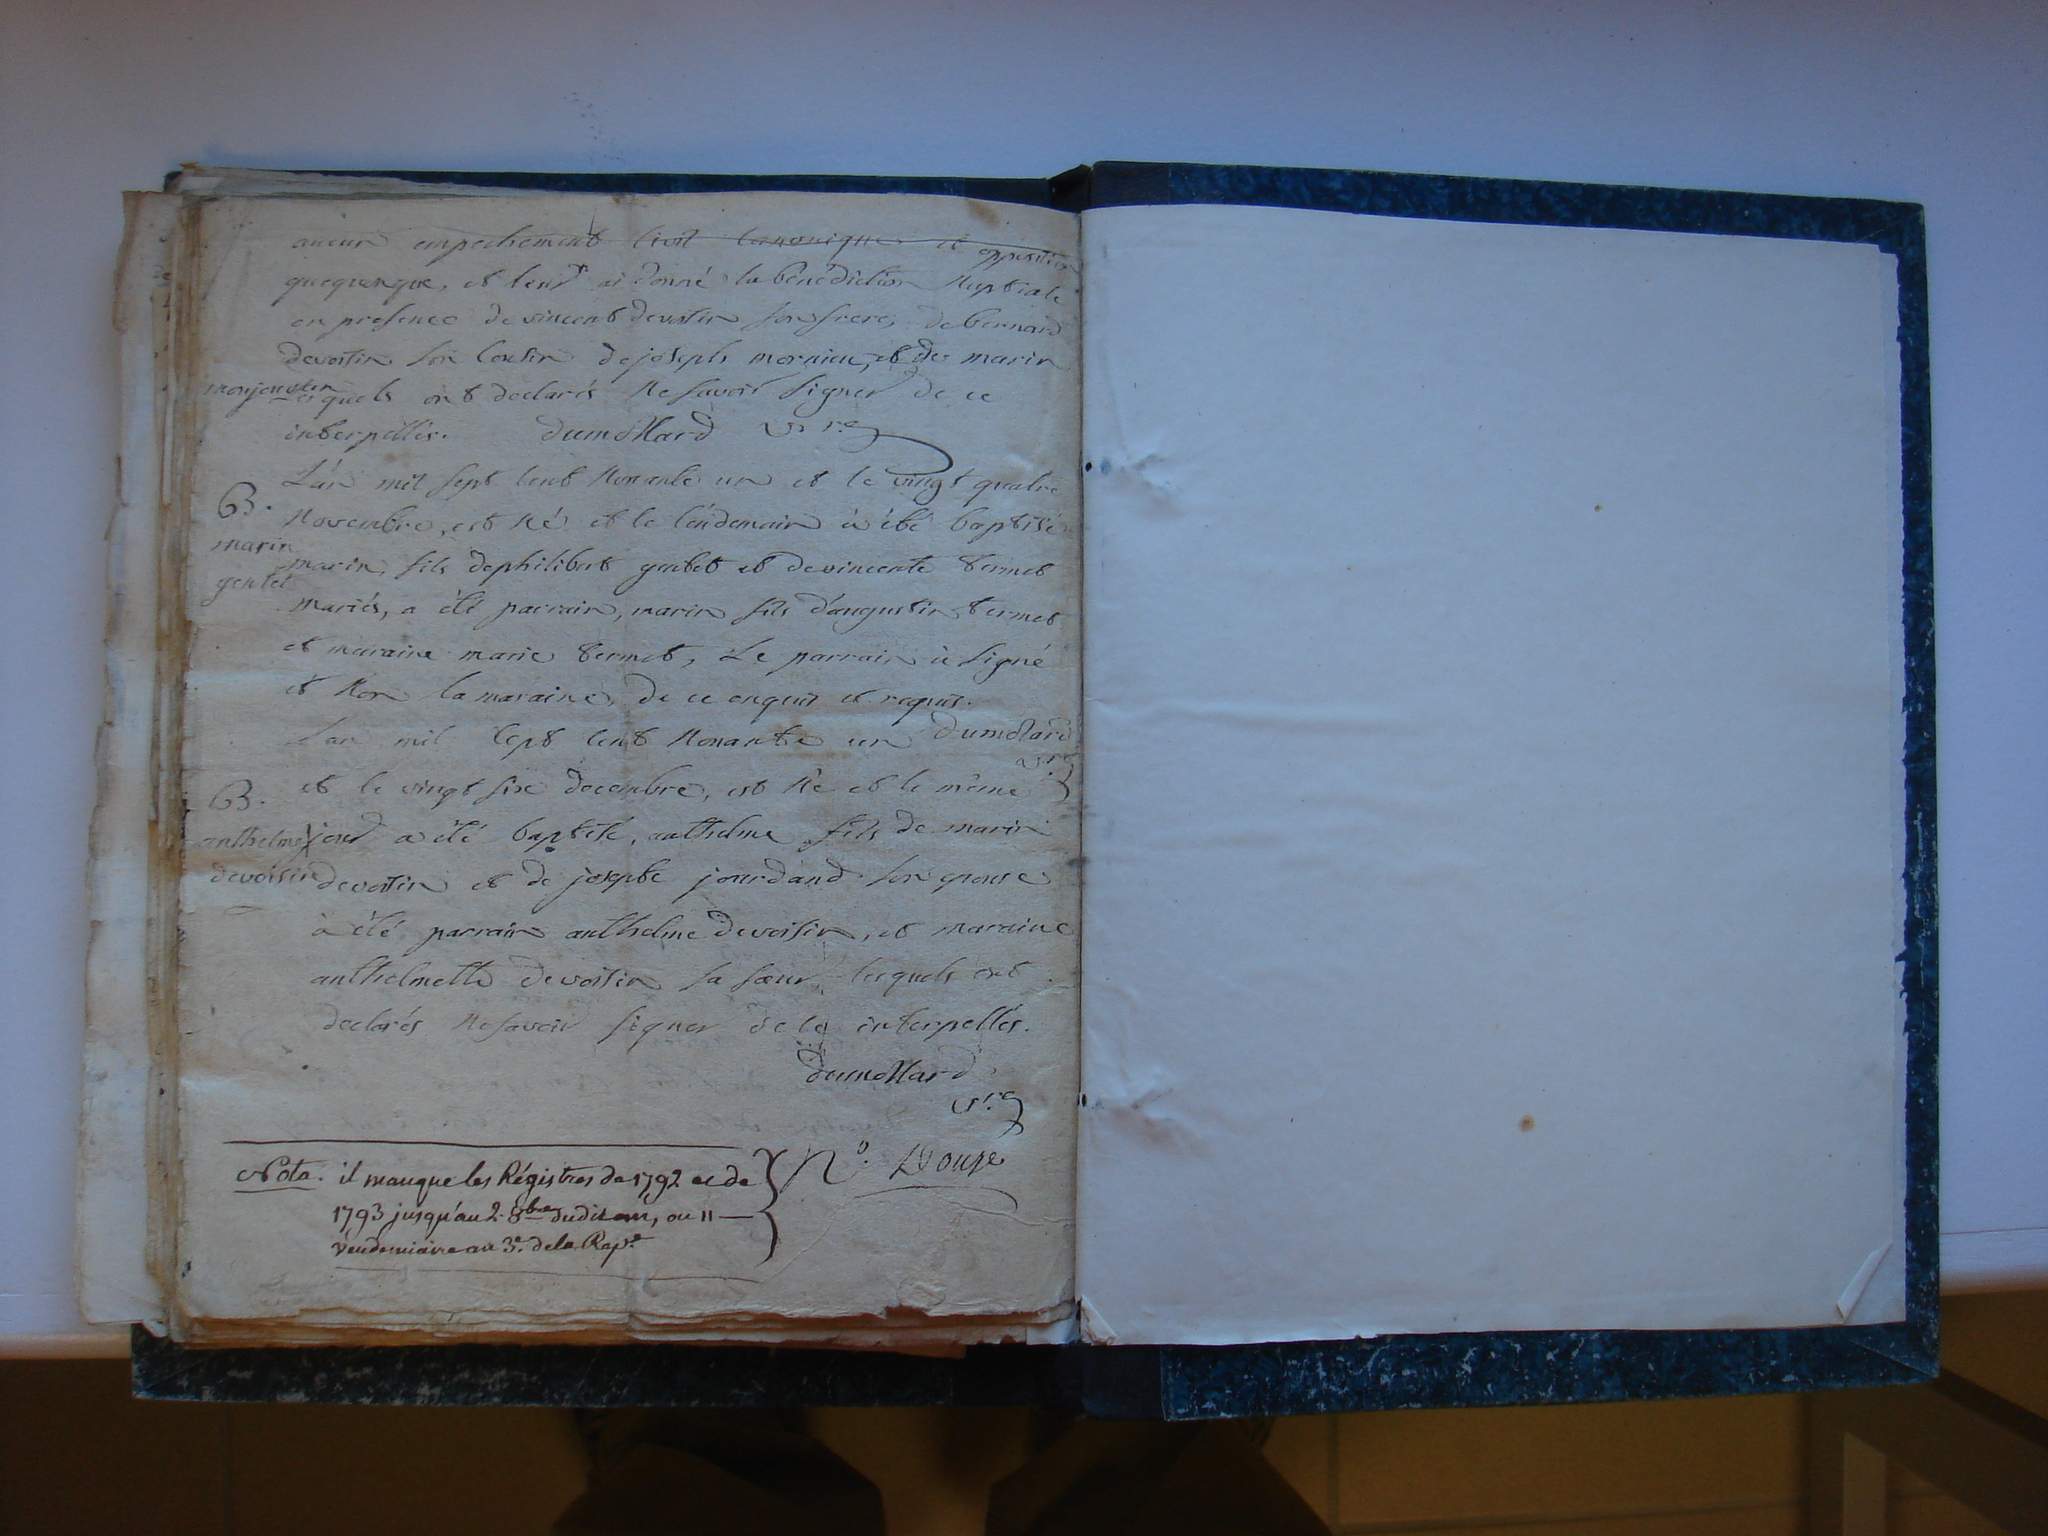 aucun empechement civil canonique et opposition
quequonque, et leur ai donné la bénédiction Nuptiale
en presence de vincent devoisin son frere, de bernard
devoisin son cousin de joseph mornieu, et de marin
monjou lesquels ont declarés ne savoir signer de ce
interpellés. Dumollard v.re
L'an mil sept cent Nonante un et le vingt quatre
Novembre, est Né et le lendemain à été baptisé
B.
marin
gentet
marin, fils de philibert gentet et de vincente termet
mariés, a été parrain, marin fils d'augustin termet
et maraine marie termet, Le parrain à signé
et Non la maraine, de ce enquis et requis.
Dumollard
v.re
L'an mil sept cent Nonante un
et le vingt six decembre, est Né et le même
B.
anthelme
devoisin
jour a été baptisé, anthelme fils de marin
devoisin et de josepte jourdand son epouse
à été parrain anthelme devoisin, et maraine
anthelmette devoisin sa sœur, lesquels ont
declarés Ne savoir signer de ce interpellés.
Dumollard
v.re
Nota. il manque les Régistres de 1792 et de
1793 jusqu'au 2. 8bre dudit an, ou 11
vendemiaire an 3e. de la Rep.e
N.o Douze